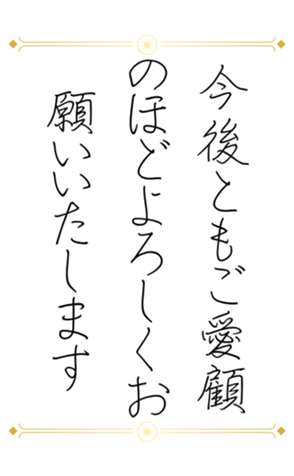 今後ともご愛顧
のほどよろしくお
願いいたします